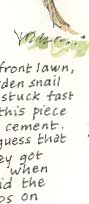 front lawn,
rden snail
stuck fast
this piece
cement.
guess that
ey got
when
id the
ps on